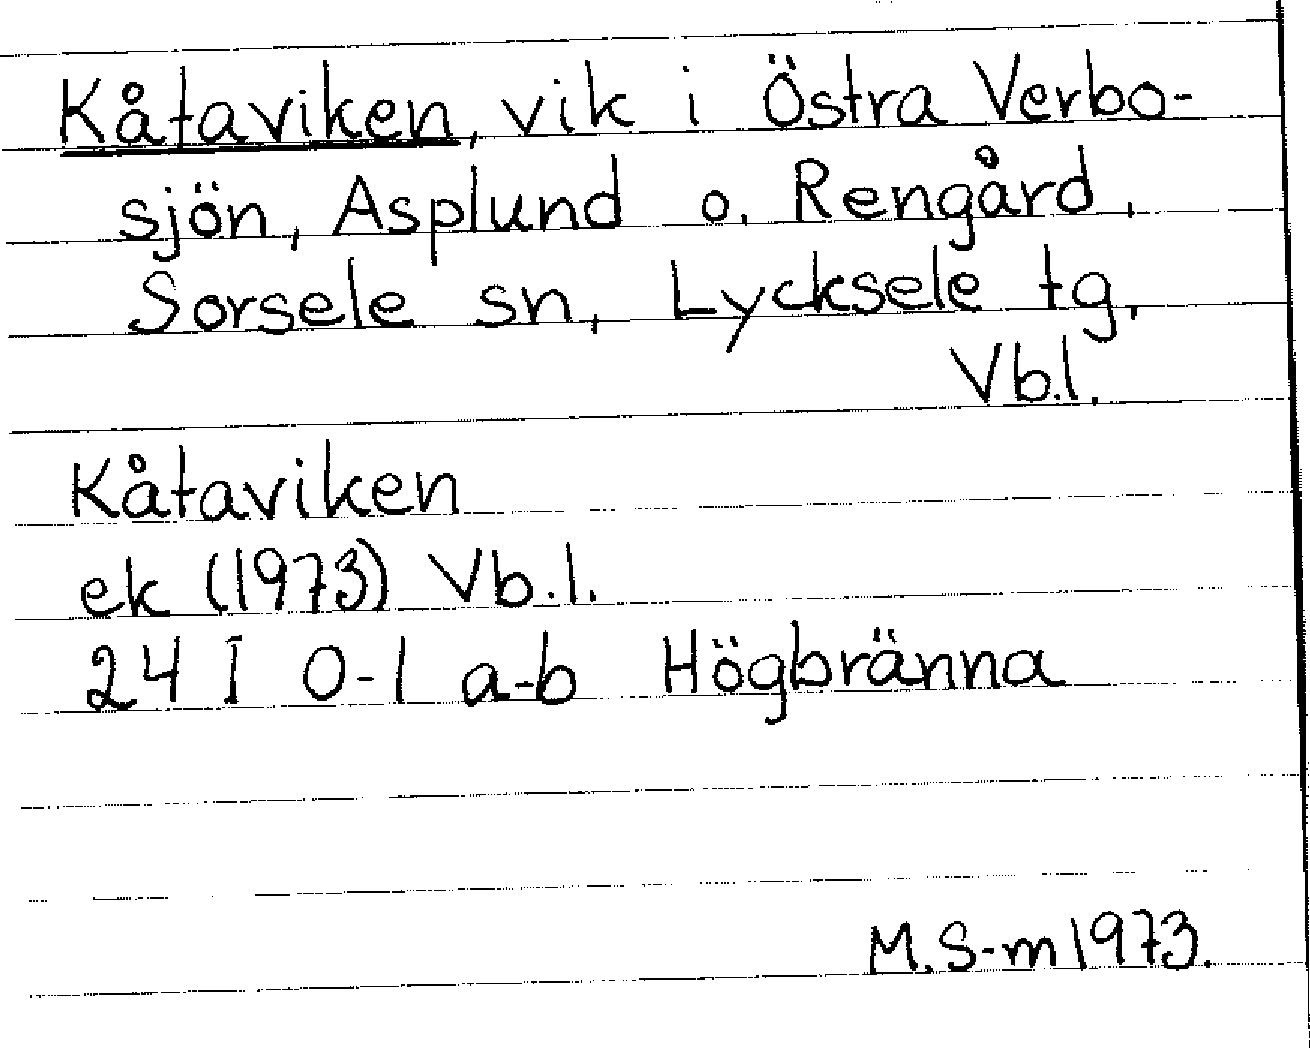 Kåtaviken, vik i Östra Verbo-
sjön, Asplund o. Rengård,
Sorsele sn, Lycksele tg,
Vb.l.
Kåtaviken
ek (1973) Vb.l.
24 I 0-1 a-b Högbränna
M.S-m 1973.